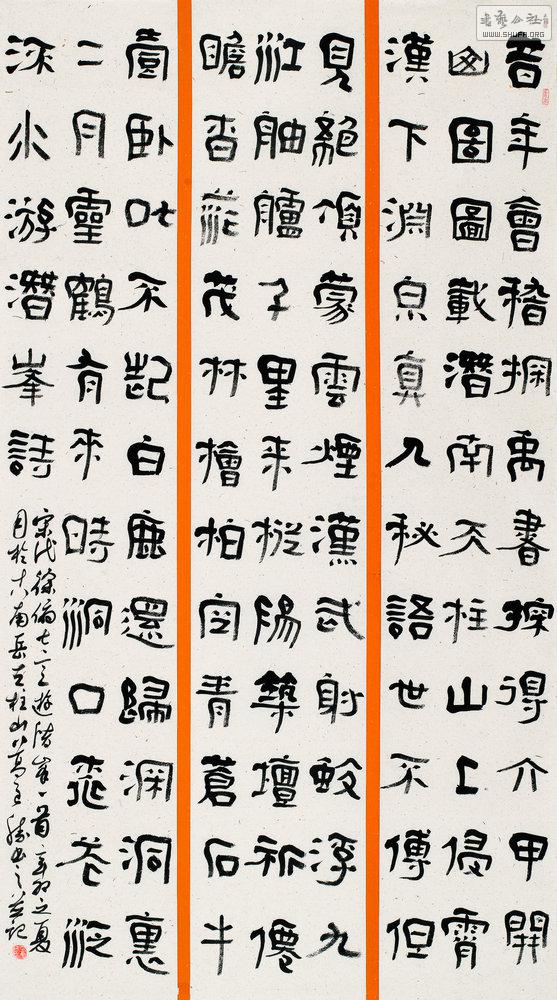 書藝公社
WWW.SHUFA.ORG
昔年會稽探禹書探得六甲開
函圖圖載潛南天柱山上侵霄
漢下淵泉真人秘語世不傳但
見絕頂蒙雲煙漢武射蛟浮九
江舳艫千里来樅陽築壇祈僊
瞻杳茫茂林檜柏空青蒼石牛
壹卧叱不起白鹿還歸深洞裏
二月靈鶴有来時洞口桃花泛
流水游潛峯詩
宋代徐俯七言遊潛峯一首辛卯之夏
於古南岳天柱山下書之并記